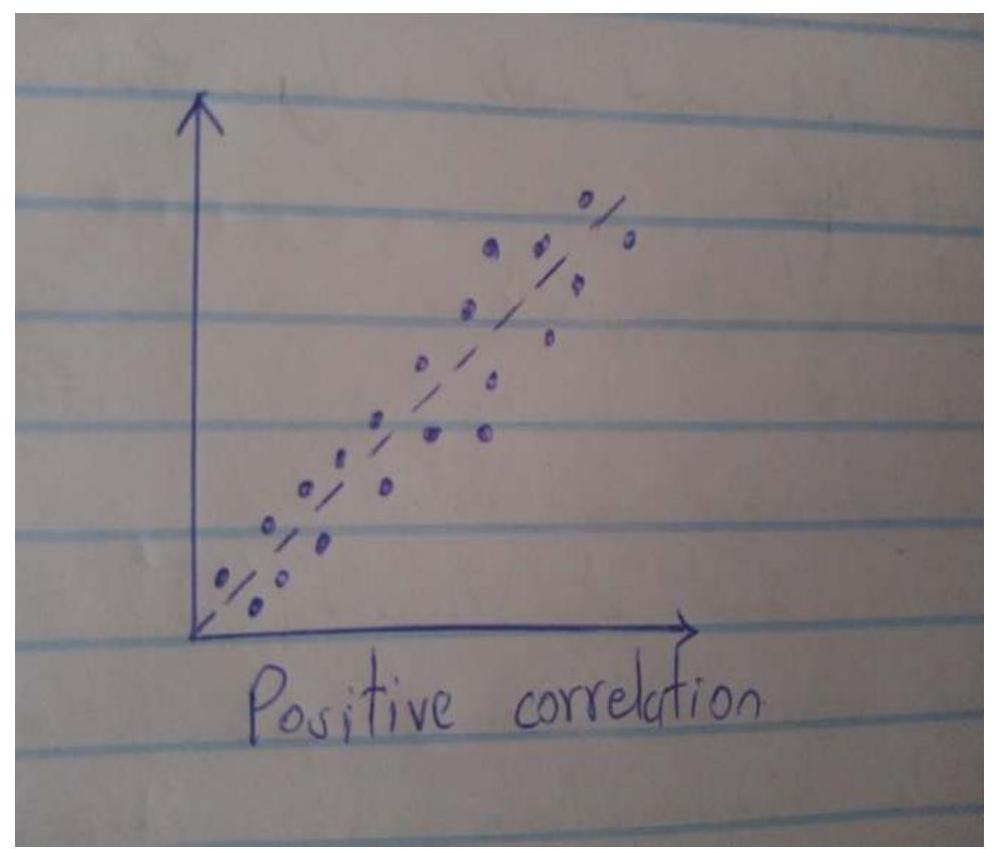 Positive correlation